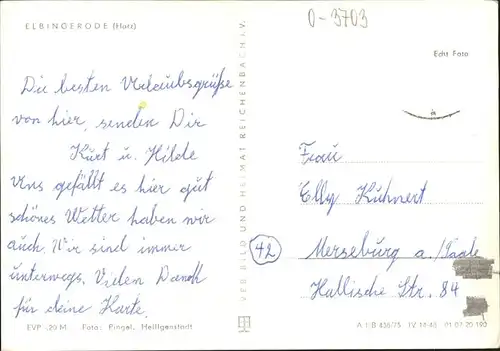 ELBINGERODE (Harz)
0-3703
Echt Foto
Die besten Urlaubsgrüße
von hier, senden Dir
Kurt u. Hilde
Uns gefällt es hier gut
schönes Wetter haben wir
auch. Wir sind immer
unterwegs. Vielen Dank
für deine Karte.
EVP -,20 M Foto: Pingel, Heiligenstadt
VEB BILD UND HEIMAT REICHENBACH i. V.
Frau
Elly Kühnert
42
Merseburg a./Saale
Hallische Str. 84
A 1/B 436/75 IV-14-48 01 07 20 192